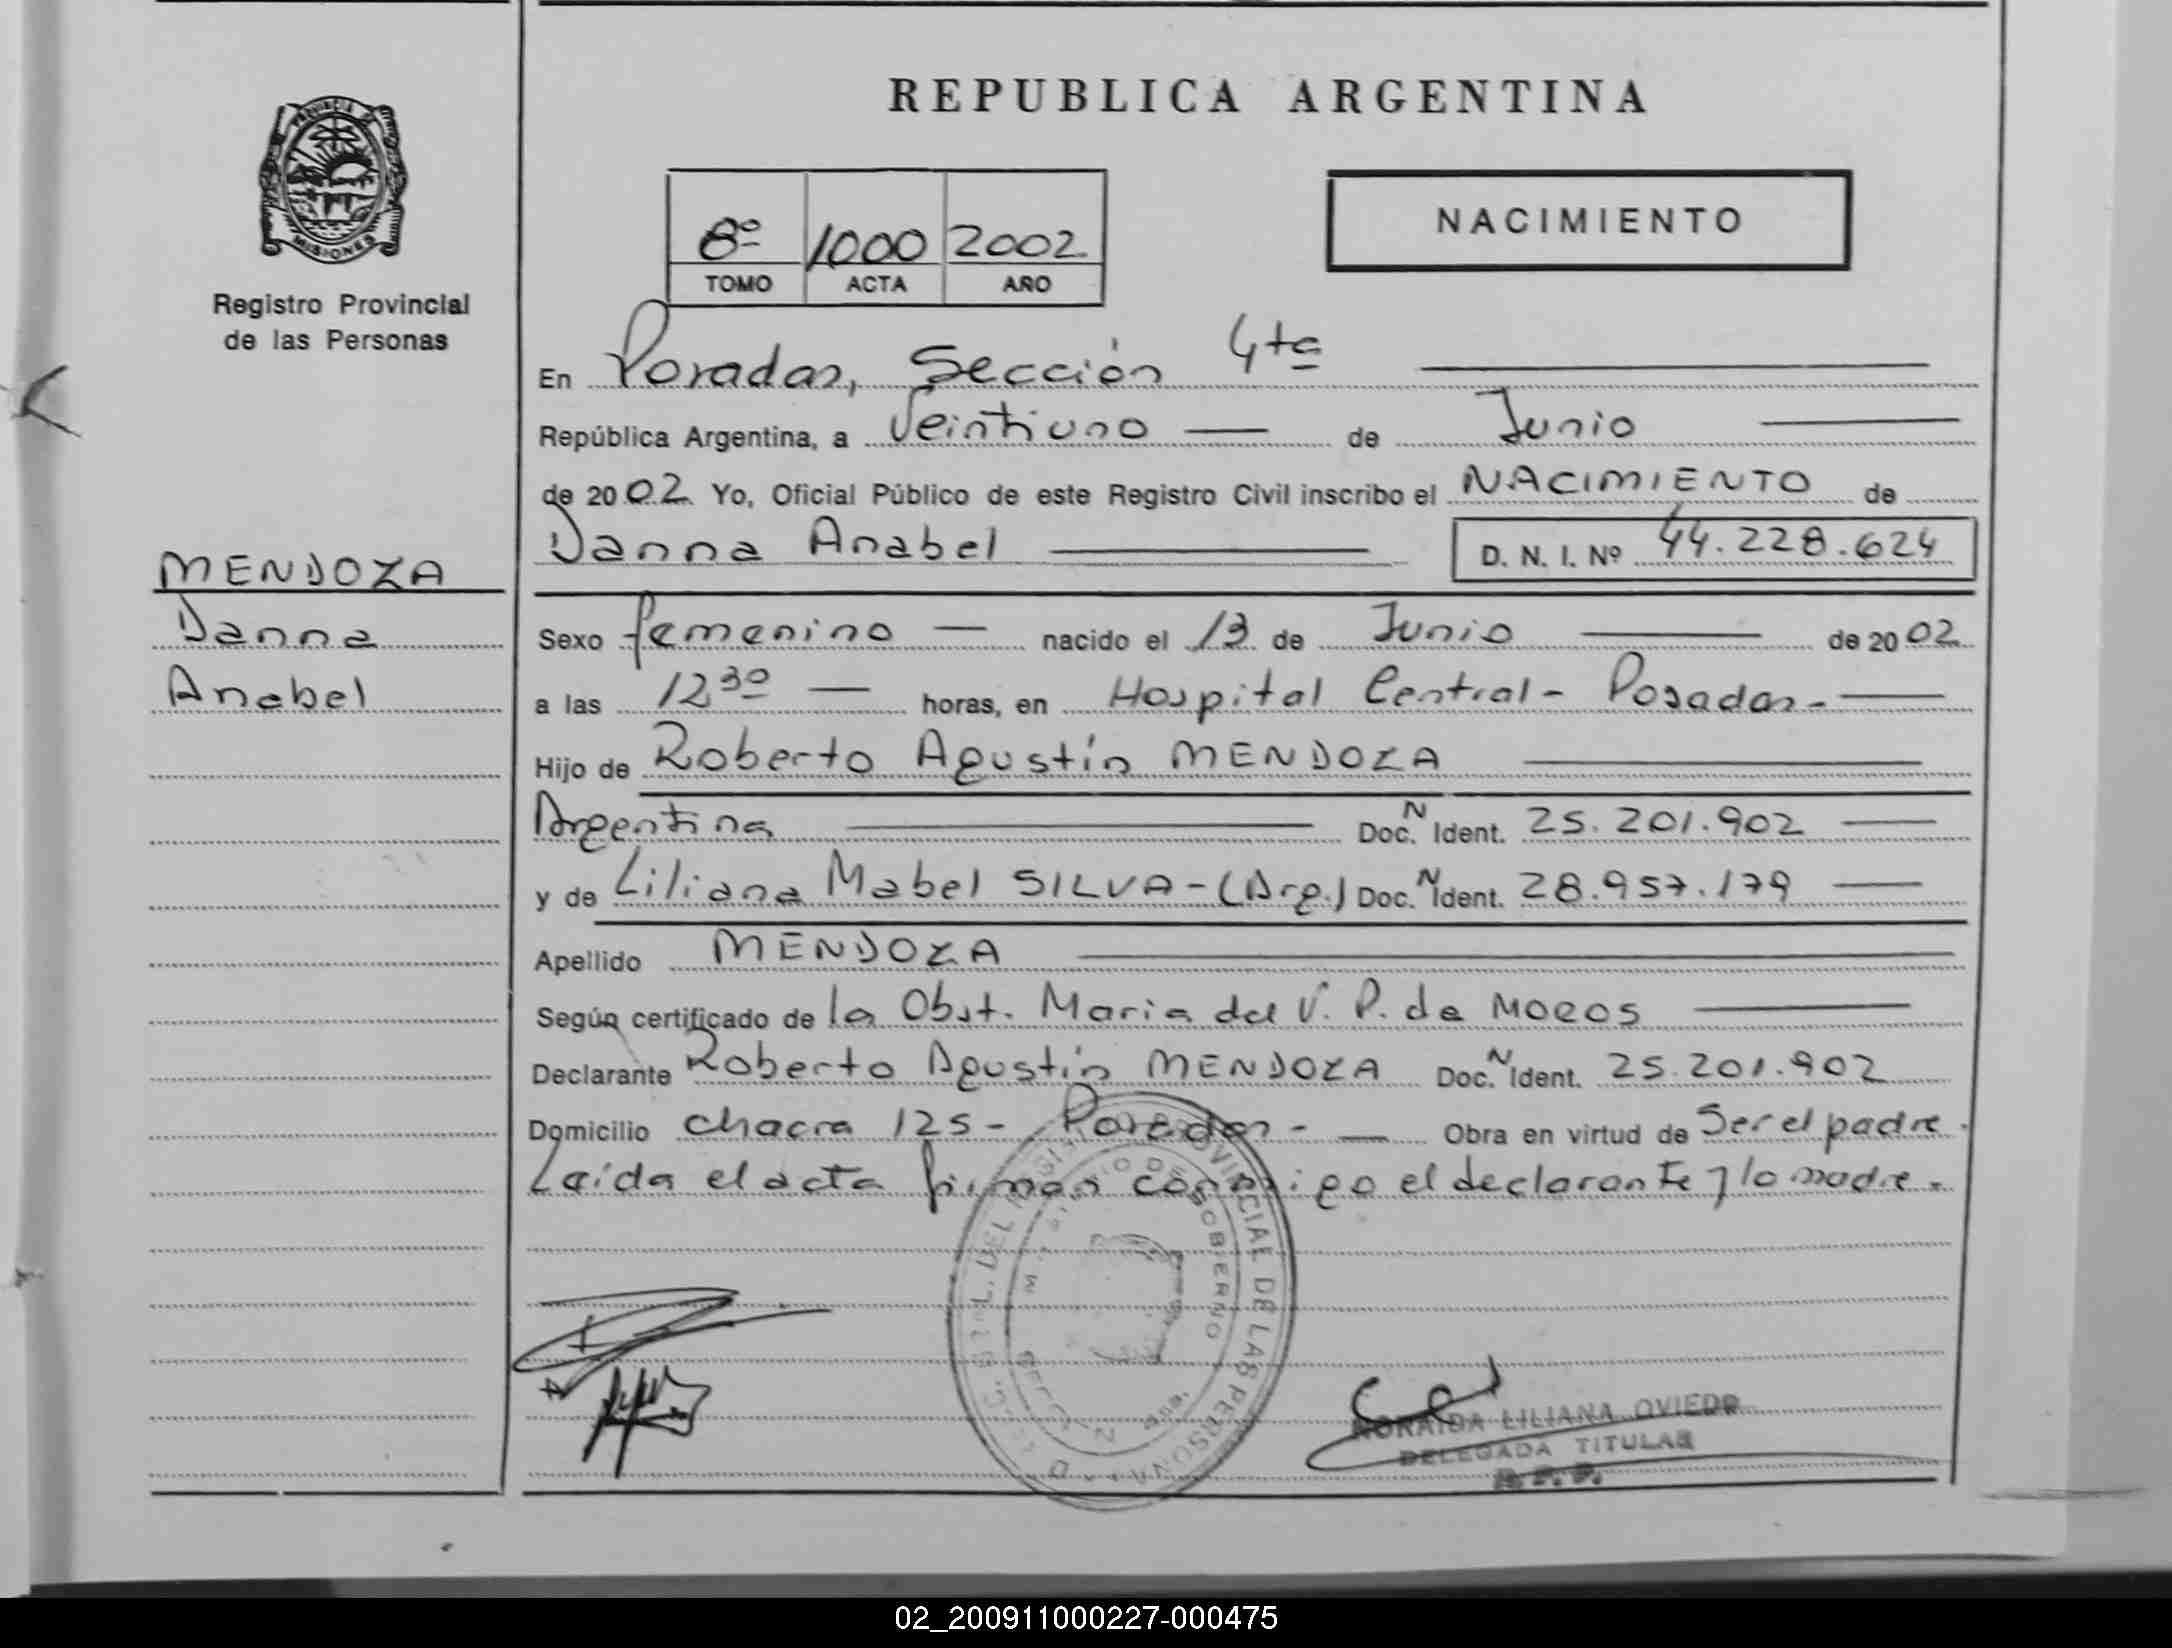 REPUBLICA ARGENTINA
PROVINCIA DE
MISIONES
Registro Provincial
de las Personas
8º 1000 2002
TOMO ACTA AÑO
NACIMIENTO
En Posadas, Sección 4ta
República Argentina, a Veintiuno de Junio
de 2002 Yo, Oficial Público de este Registro Civil inscribo el NACIMIENTO de
Danna Anabel D. N. I. Nº 44.228.624
MENDOZA
Danna
Anabel
Sexo femenino nacido el 13 de Junio de 2002
a las 12 30 horas, en Hospital Central - Posadas -
Hijo de Roberto Agustín MENDOZA
Argentina Doc. N Ident. 25.201.902
y de Liliana Mabel SILVA - (Arg.) Doc. N Ident. 28.957.179
Apellido MENDOZA
Según certificado de la Obst. Maria del V. P. de MOROS
Declarante Roberto Agustín MENDOZA Doc. N Ident. 25.201.902
Domicilio chacra 125 - Posadas - Obra en virtud de Ser el padre.
Leida el acta firman conmigo el declarante y la madre.
DEL REGISTRO PROVINCIAL DE LAS PERSONAS
MINISTERIO DE GOBIERNO
NORAIDA LILIANA OVIEDO
DELEGADA TITULAR
R. P. P.
02_200911000227-000475